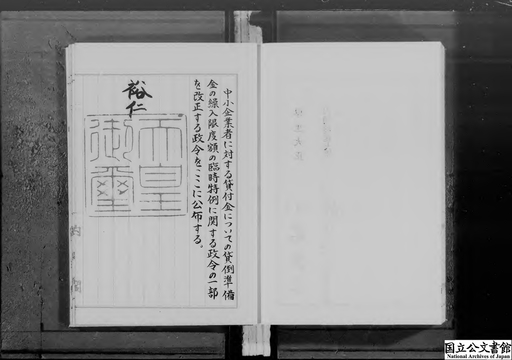 中小企業者に対する貸付金についての貸倒準備
金の繰入限度額の臨時特例に関する政令の一部
を改正する政令をここに公布する。
裕仁
天皇
御璽
国立公文書館
National Archives of Japan